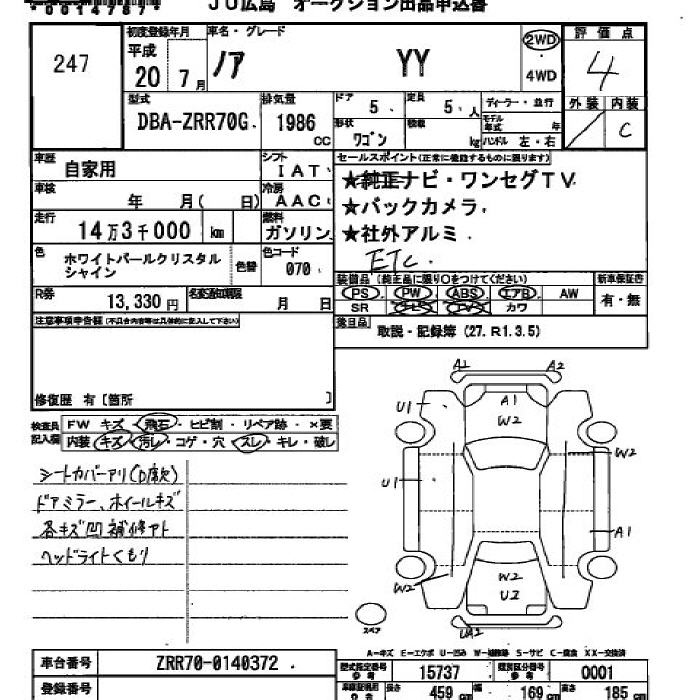 00147871
JU広島 オークション出品申込書
247
初度登録年月 平成 20 7月
車名・グレード ノア YY
2WD ・ 4WD
評価点 4
型式 DBA-ZRR70G
排気量 1986 cc
ドア 5
定員 5 人
ディーラー・並行
形状 ワゴン
積載 kg
モデル年式 年
ハンドル 左・右
外装 内装
C
車歴 自家用
シフト IAT
セールスポイント(正常に機能するものに限ります)
車検 年 月( 日)
冷房 AAC
★純正ナビ・ワンセグTV
★バックカメラ
走行 14万3千000 km
燃料 ガソリン
★社外アルミ
ETC.
色 ホワイトパールクリスタルシャイン
色替
色コード 070
装備品 (純正品に限り○をつけてください)
新車保証書
PS PW ABS エアB AW
有・無
SR ナビ TV カワ
R券 13,330円
名変通知期限 月 日
後日品 取説・記録簿(27.R1.3.5)
注意事項申告欄(不具合内容等は具体的に記入して下さい)
修復歴 有〔箇所 〕
検査員記入欄
FW キズ・飛石・ヒビ割・リペア跡・×要
内装 キズ・汚レ・コゲ・穴・スレ・キレ・破レ
シートカバーアリ(D席欠)
ドアミラー、ホイールキズ
各キズ凹補修アト
ヘッドライトくもり
A1 A2
A1
W2
U1
W2
U1
A1
W2
U2
W2
UA2
スペア
A-キズ E-エクボ U-凹み W-補修跡 S-サビ C-腐食 XX-交換済
車台番号 ZRR70-0140372
型式指定番号 参考 15737
類別区分番号 参考 0001
登録番号
長さ 459 cm
幅 169 cm
高さ 185 cm